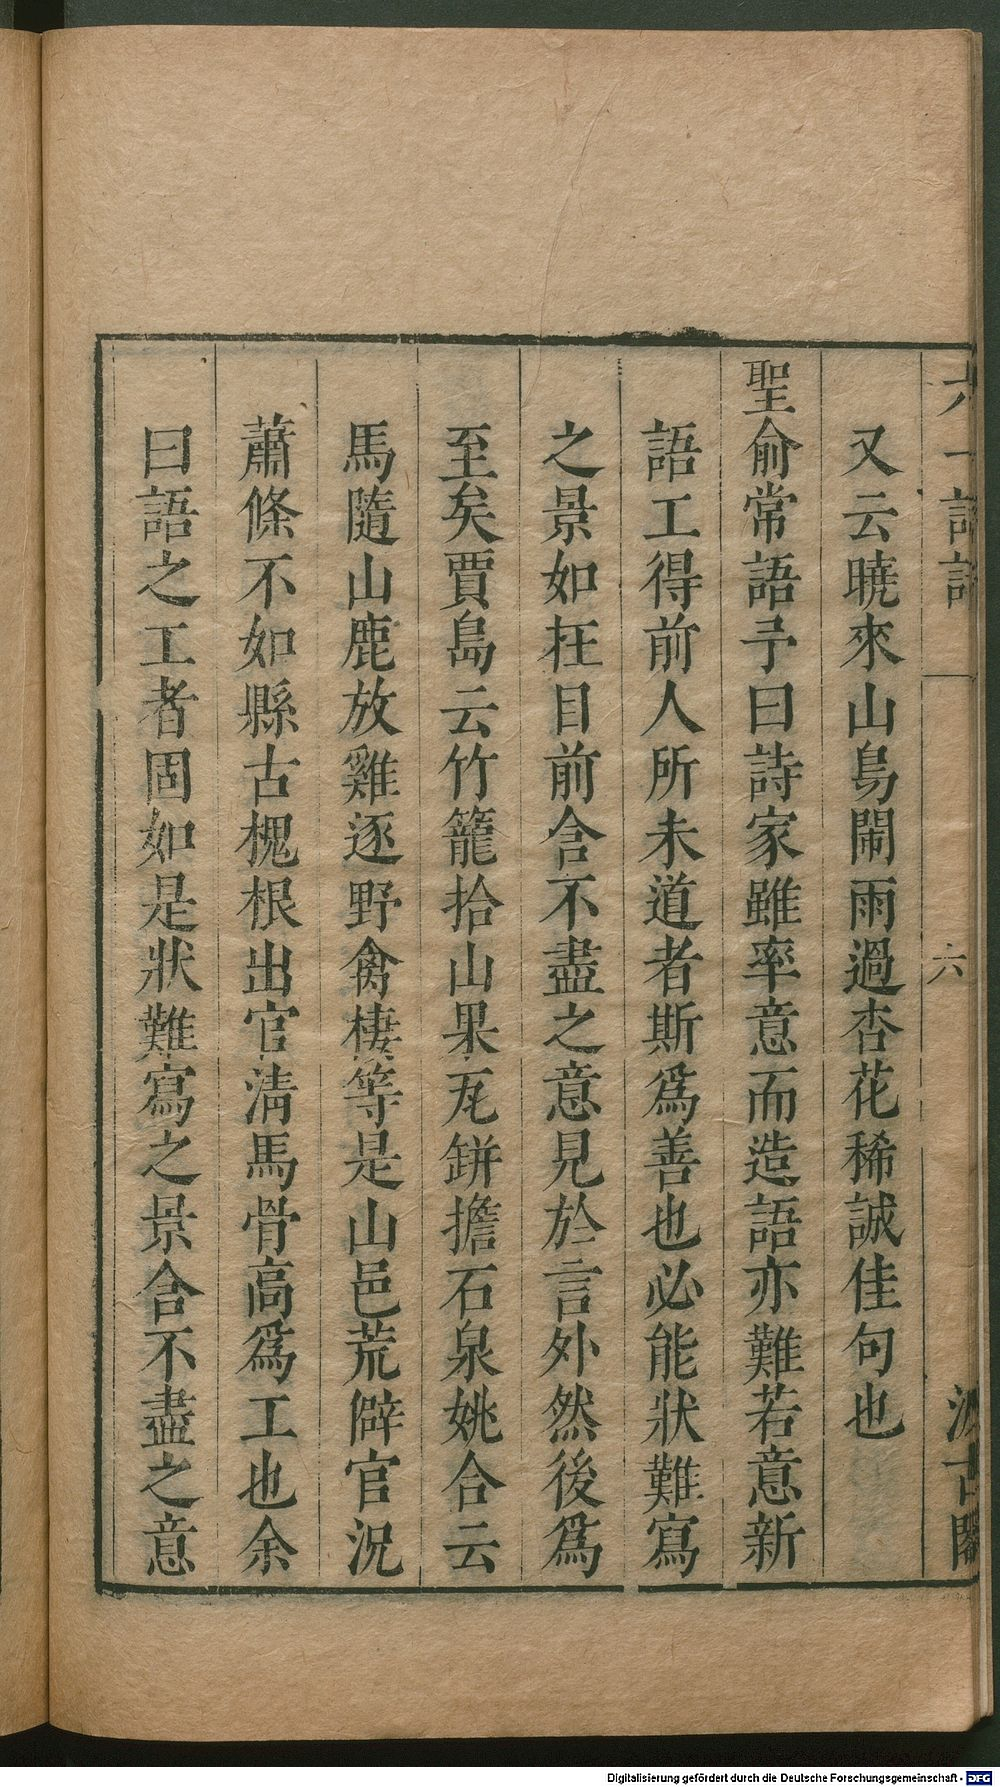 六一詩話
六
汲古閣
又云曉來山鳥鬧雨過杏花稀誠佳句也
聖俞常語予曰詩家雖率意而造語亦難若意新
語工得前人所未道者斯爲善也必能狀難寫
之景如在目前含不盡之意見於言外然後爲
至矣賈島云竹籠拾山果瓦缾擔石泉姚合云
馬隨山鹿放雞逐野禽棲等是山邑荒僻官況
蕭條不如縣古槐根出官清馬骨高爲工也余
曰語之工者固如是狀難寫之景含不盡之意
Digitalisierung gefördert durch die Deutsche Forschungsgemeinschaft - DFG